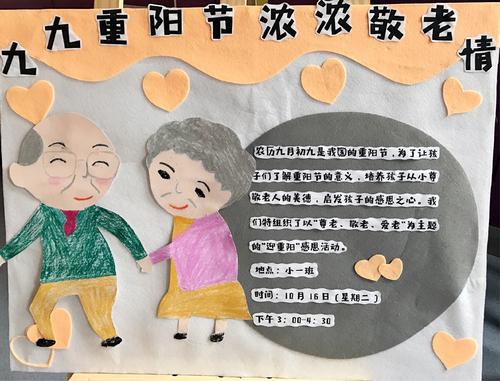 九九重阳节浓浓敬老情
农历九月初九是我国的重阳节，为了让孩
子们了解重阳节的意义，培养孩子从小尊
敬老人的美德，启发孩子的感恩之心。我
们特组织了以“尊老、敬老、爱老”为主题
的“迎重阳”感恩活动。
地点：小一班
时间：10月16日（星期二）
下午3：00-4：30